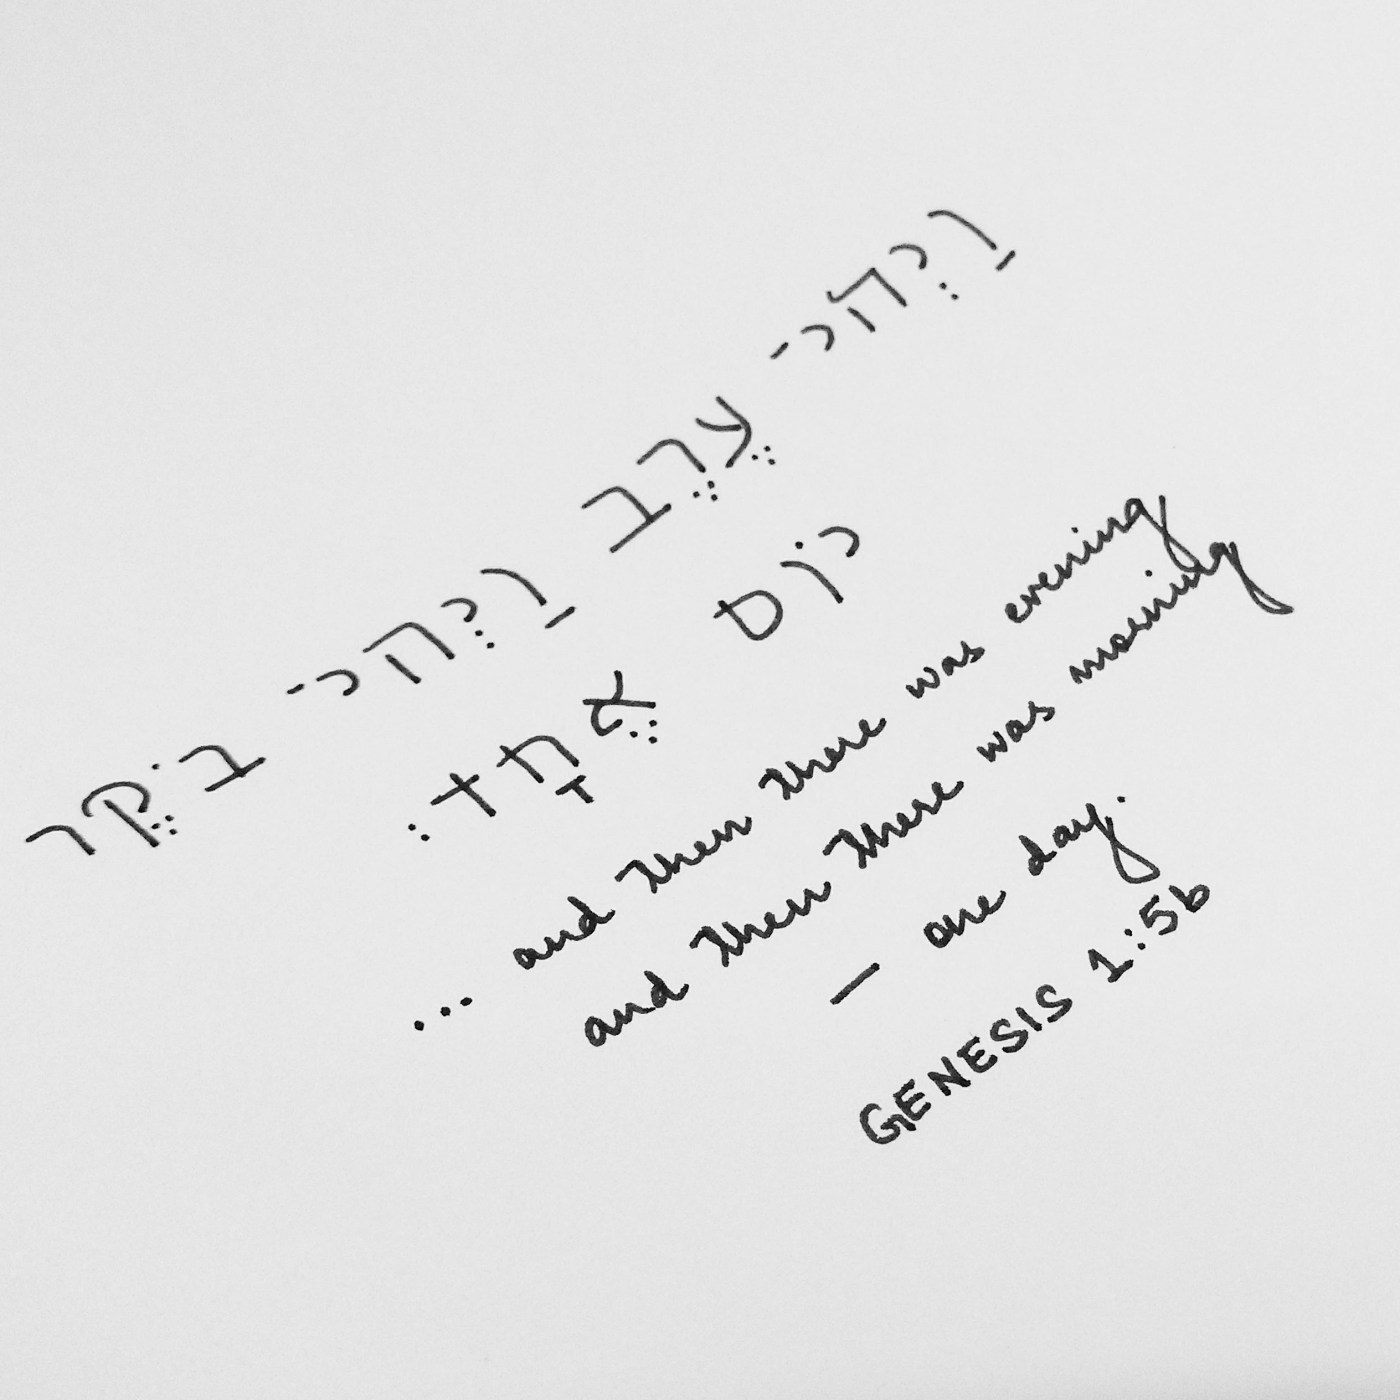 וַיְהִי־ עֶרֶב וַיְהִי־ בֹקֶר
יוֹם אֶחָד׃
... and then there was evening
and then there was morning
— one day.
GENESIS 1:5b